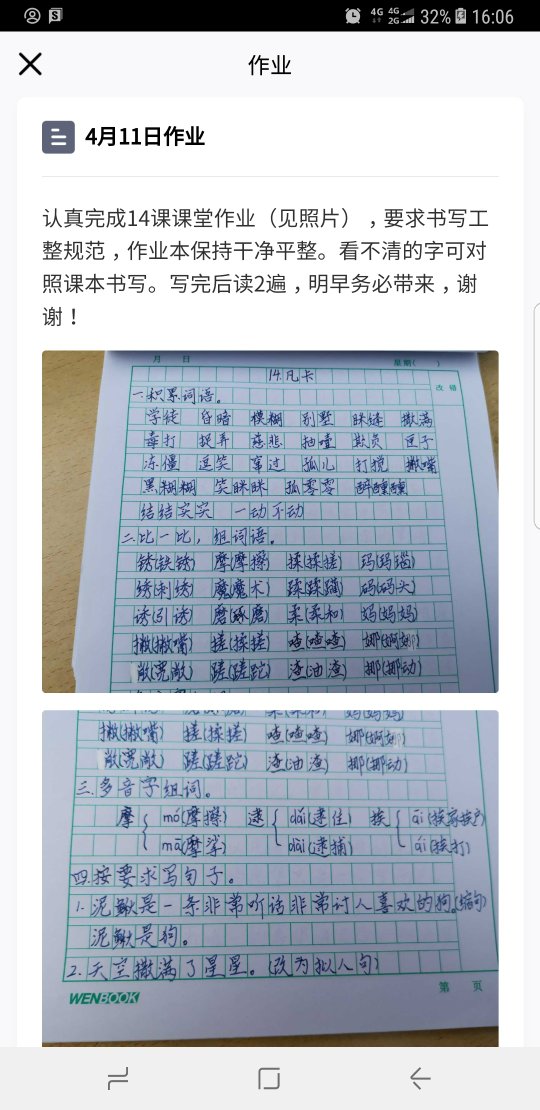 4G 4G 2G 32% 16:06
作业
4月11日作业
认真完成14课课堂作业（见照片），要求书写工
整规范，作业本保持干净平整。看不清的字可对
照课本书写。写完后读2遍，明早务必带来，谢
谢！
月 日 星期( )
14.凡卡
改错
一.积累词语。
学徒 昏暗 模糊 别墅 昧缝 撒满
毒打 捉弄 慈悲 抽噎 欺负 匣子
冻僵 逗笑 穿过 孤儿 打搅 撇嘴
黑糊糊 笑眯眯 孤零零 醉醺醺
结结实实 一动不动
二.比一比，组词语。
锈(铁锈) 摩(摩擦) 揉(揉搓) 玛(玛瑙)
绣(刺绣) 魔(魔术) 蹂(蹂躏) 码(码头)
诱(引诱) 磨(琢磨) 柔(柔和) 妈(妈妈)
撇(撇嘴) 搓(揉搓) 喳(喳喳) 娜(婀娜)
敞(宽敞) 蹉(蹉跎) 渣(油渣) 挪(挪动)
撇(撇嘴) 搓(揉搓) 喳(喳喳) 娜(婀娜)
敞(宽敞) 蹉(蹉跎) 渣(油渣) 挪(挪动)
三.多音字组词。
摩 mó(摩擦) 逮 dǎi(逮住) 挨 āi(挨家挨户)
mā(摩挲) dài(逮捕) ái(挨打)
四.按要求写句子。
1.泥鳅是一条非常听话非常讨人喜欢的狗。(缩句)
泥鳅是狗。
2.天空撒满了星星。(改为拟人句)
WENBOOK 第 页